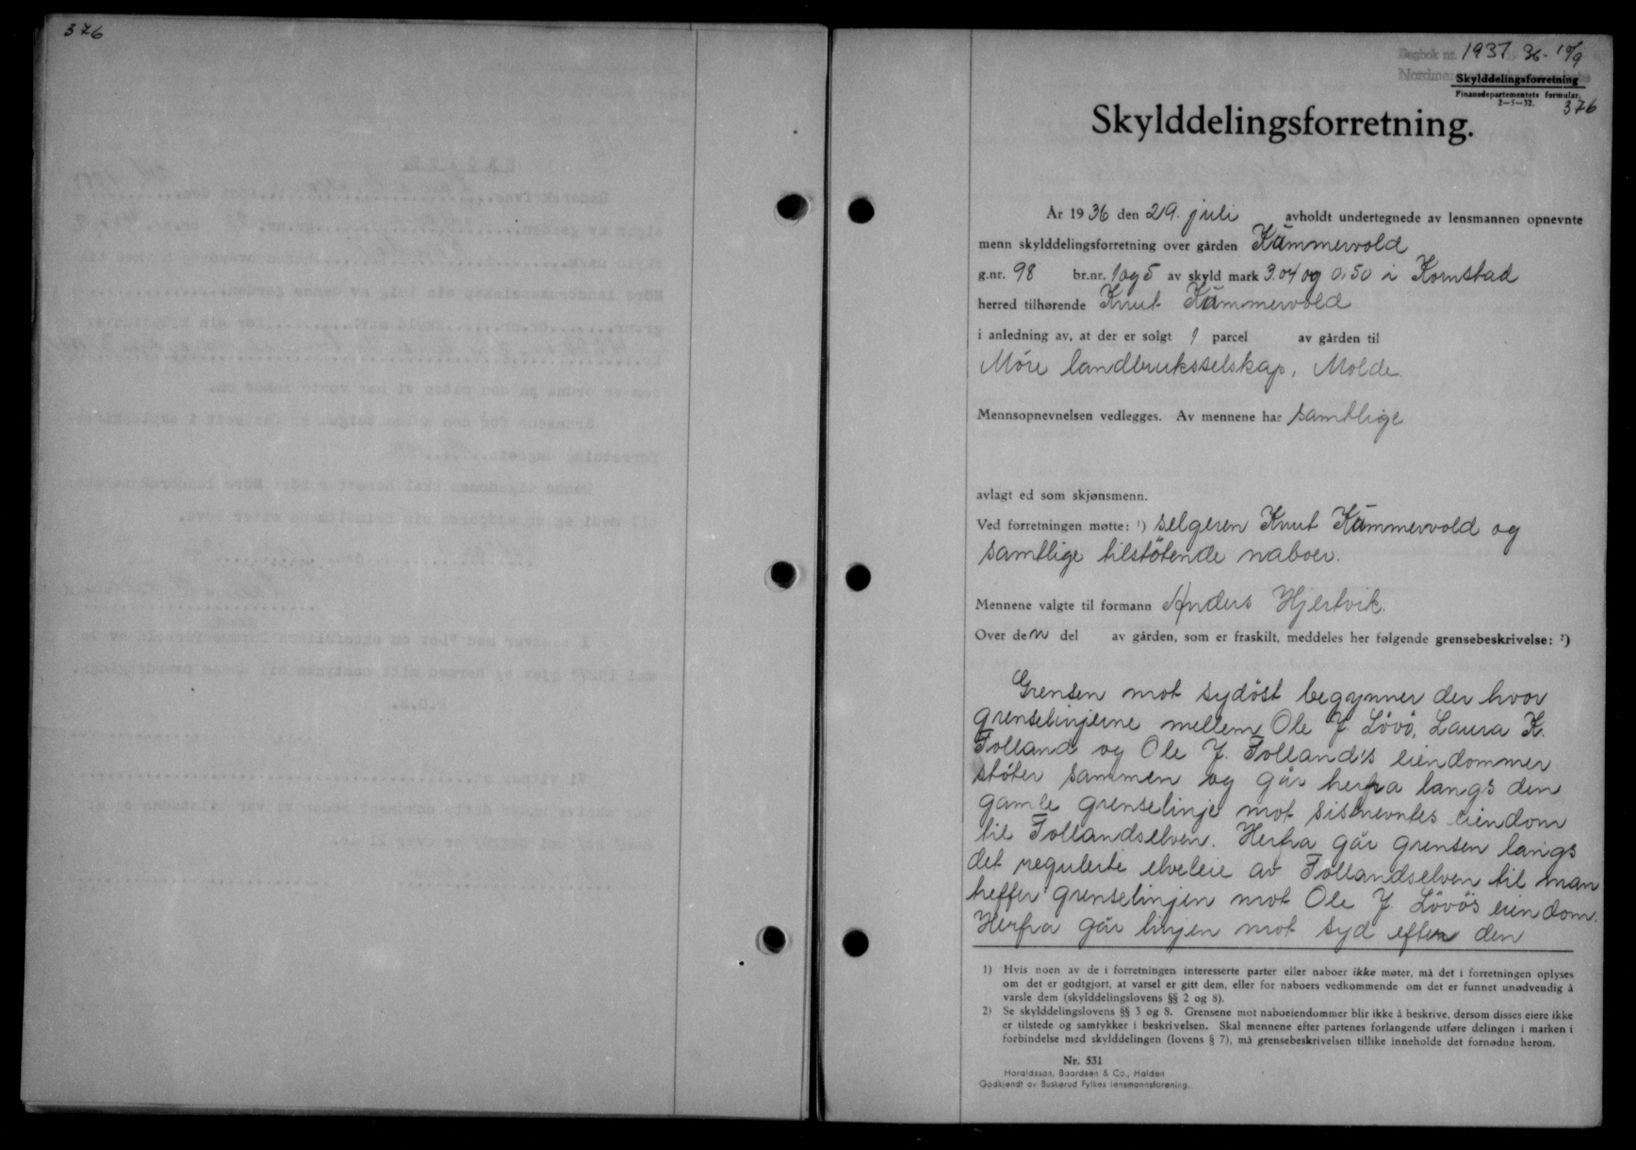 376
Dagbok nr. 1937. 36 - 10/9
Skylddelingsforretning
Finansdepartementets formular
2-5-32.
376
Skylddelingsforretning.
År 1936 den 29. juli avholdt undertegnede av lensmannen opnevnte
menn skylddelingsforretning over gården Kåmmervold
g.nr. 98 br.nr. 1 og 5 av skyld mark 3.04 og 0.50 i Kornstad
herred tilhørende Knut Kåmmervold
i anledning av, at der er solgt 1 parcel av gården til
Møre landbruksselskap, Molde
Mennsopnevnelsen vedlegges. Av mennene har samtlige
avlagt ed som skjønsmenn.
Ved forretningen møtte: ¹) selgeren Knut Kåmmervold og
samtlige tilstötende naboer.
Mennene valgte til formann Anders Hjertvik.
Over den del av gården, som er fraskilt, meddeles her følgende grensebeskrivelse: ²)
Grensen mot sydöst begynner der hvor
grenselinjerne mellem Ole J. Lövö, Laura K.
Folland og Ole J. Folland's eiendommer
stöter sammen og går herfra langs den
gamle grenselinje mot sisnevntes eiendom
til Follandselven. Herfra går grensen langs
det regulerte elveleie av Follandselven til man
treffer grenselinjen mot Ole J. Lövös eiendom.
Herfra går linjen mot syd efter den
1) Hvis noen av de i forretningen interesserte parter eller naboer ikke møter, må det i forretningen oplyses
om det er godtgjort, at varsel er gitt dem, eller for naboers vedkommende om det er funnet unødvendig å
varsle dem (skylddelingslovens §§ 2 og 8).
2) Se skylddelingslovens §§ 3 og 8. Grensene mot naboeiendommer blir ikke å beskrive, dersom disses eiere ikke
er tilstede og samtykker i beskrivelsen. Skal mennene efter partenes forlangende utføre delingen i marken i
forbindelse med skylddelingen (lovens § 7), må grensebeskrivelsen tillike inneholde det fornødne herom.
Nr. 531
Haraldssan, Baardsen & Co., Halden
Godkjendt av Buskerud Fylkes lensmannsforening.